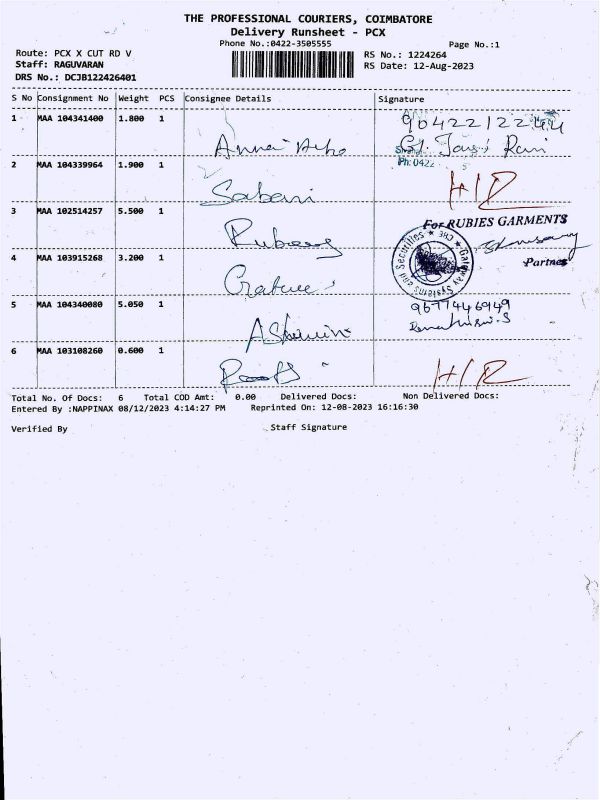 THE PROFESSIONAL COURIERS, COIMBATORE
Delivery Runsheet - PCX
Phone No.:0422-3505555
Page No.:1
Route: PCX X CUT RD V
RS No.: 1224264
Staff: RAGUVARAN
RS Date: 12-Aug-2023
DRS No.: DCJB122426401
S No Consignment No Weight PCS Consignee Details Signature
1 MAA 104341400 1.800 1 9042212244
Anna
Ph: 0422
2 MAA 104339964 1.900 1
Sabari H/R
3 MAA 102514257 5.500 1 For RUBIES GARMENTS
Partner
4 MAA 103915268 3.200 1 Gateway Systems and Securities
CBE
5 MAA 104340080 5.050 1 9677446949
Ashwin
6 MAA 103108260 0.600 1
H/R
Total No. Of Docs: 6 Total COD Amt: 0.00 Delivered Docs: Non Delivered Docs:
Entered By :NAPPINAX 08/12/2023 4:14:27 PM Reprinted On: 12-08-2023 16:16:30
Verified By Staff Signature